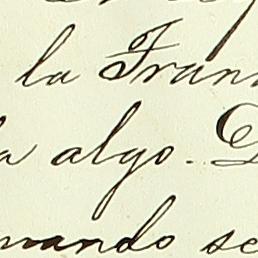 la Fran
a algo.
mando se